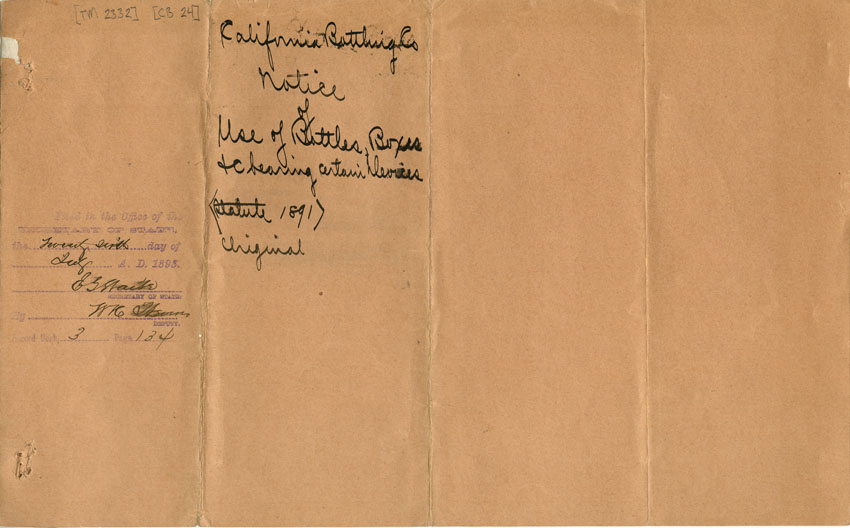 [TM 2332] [CB 24]
California Bottling Co
Notice
of
Use of Bottles, Boxes
&c bearing certain Devices
(Statute 1891)
Original
Filed in the Office of the
SECRETARY OF STATE,
the Twenty sixth day of
July A. D. 1893.
E G Waite
SECRETARY OF STATE
By W H
DEPUTY.
Record Book, 3 Page 134